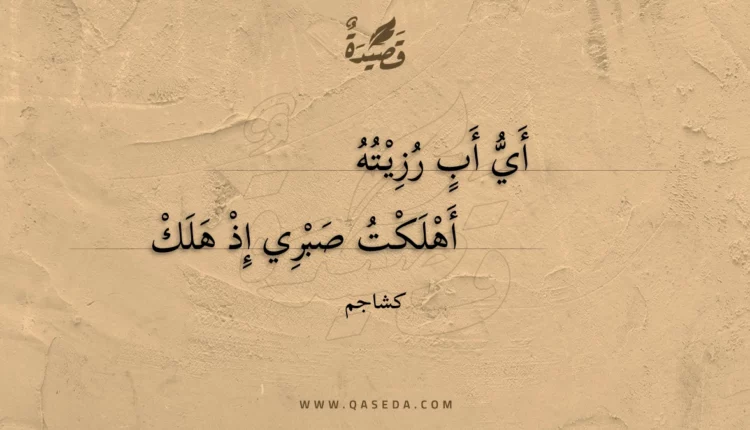 قَصِيدَةٌ
أَيُّ أَبٍ رُزِيْتُهُ
أَهْلَكْتُ صَبْرِي إِذْ هَلَكْ
كشاجم
WWW.QASEDA.COM